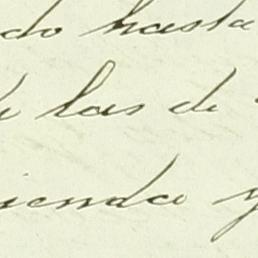 do hasta
de las de
iendo y